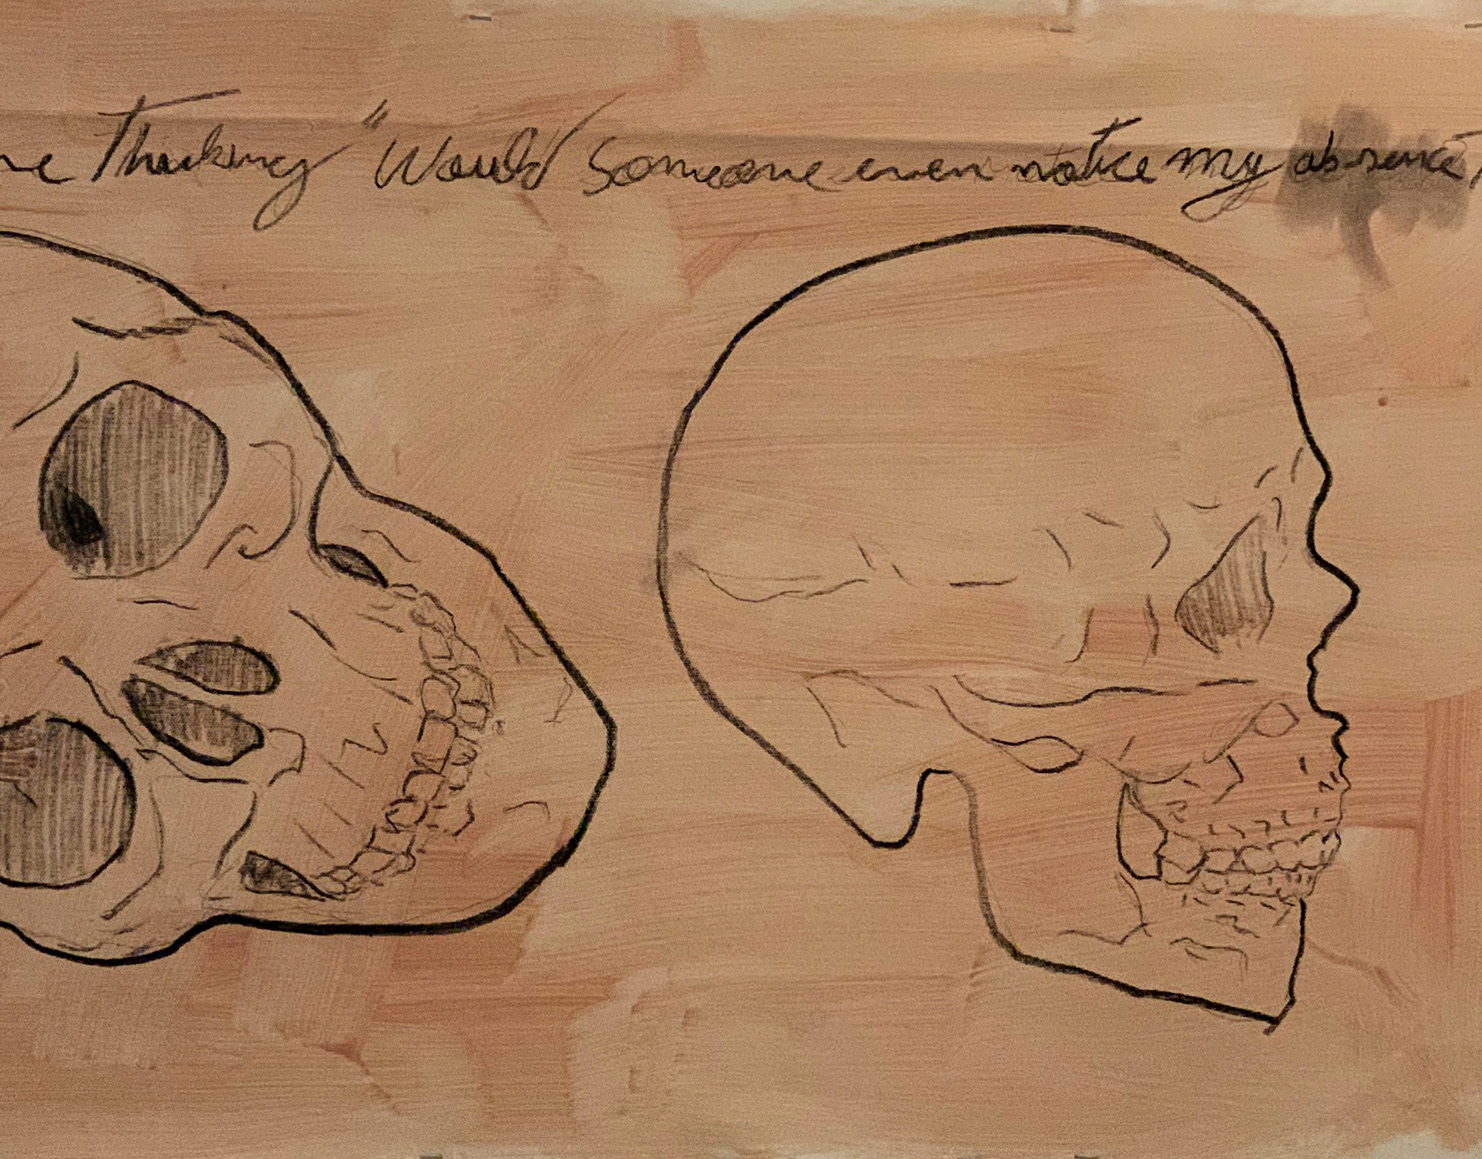 Thinking "Would Someone even notice my absence,